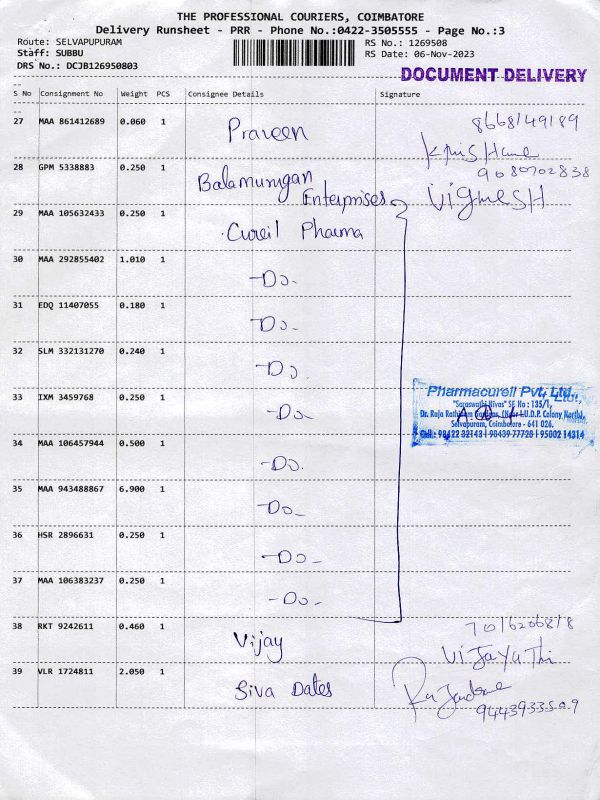 THE PROFESSIONAL COURIERS, COIMBATORE
Delivery Runsheet - PRR - Phone No.:0422-3505555 - Page No.:3
Route: SELVAPUPURAM RS No.: 1269508
Staff: SUBBU RS Date: 06-Nov-2023
DRS No.: DCJB126950803
DOCUMENT DELIVERY
S No Consignment No Weight PCS Consignee Details Signature
27 MAA 861412689 0.060 1 Praveen 8668149189
9080702838
28 GPM 5338883 0.250 1 Balamurugan Enterprises VIGNESH
29 MAA 105632433 0.250 1 Cureil Pharma
30 MAA 292855402 1.010 1 -Do-
31 EDQ 11407055 0.180 1 Do-
32 SLM 332131270 0.240 1 Do.
33 IXM 3459768 0.250 1 -Do-
34 MAA 106457944 0.500 1 -Do.
35 MAA 943488867 6.900 1 Do-
36 HSR 2896631 0.250 1 -Do-
37 MAA 106383237 0.250 1 -Do-
Pharmacureil Pvt. Ltd.,
"Saraswathi Nivas" SF No : 135/1,
Dr. Raja Rathinam Gardens, (Near LU.D.P. Colony North),
Selvapuram, Coimbatore - 641 026.
Cell : 98422 32143 | 98439 77728 | 95002 14314
38 RKT 9242611 0.460 1 Vijay 7016206818
VIJAYAThi
39 VLR 1724811 2.050 1 Siva Dates
9443933509